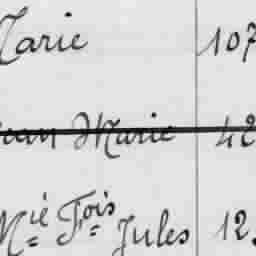 Marie 107
Jean Marie 42
Mie Fois Jules 12